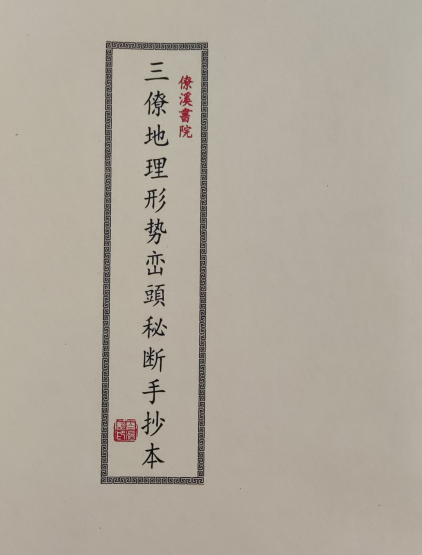 僚溪書院
三僚地理形势峦頭秘断手抄本